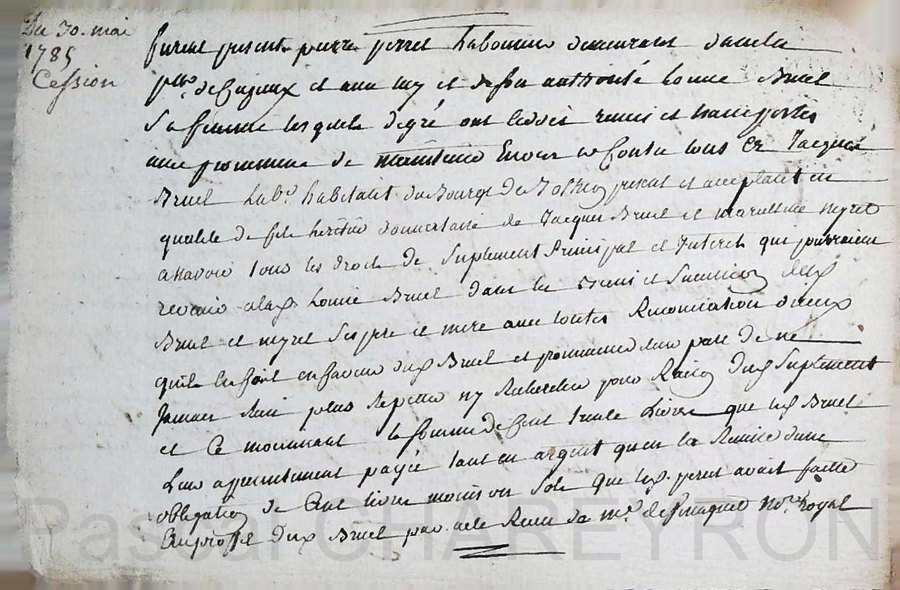 Du 30. mai
1785
Cession
furent present pierre perret laboureur demeurant dans la
psse. de Cujeux et avec luy et de son authorité Louise Bruel
Sa femme lesquels de gré ont cedés remis et transportés
avec promesse de maintenir Envers et Contre tous Er Jacques
Bruel labr. habitant du Bourg de present et acceptant en
qualité de fils heritier donnataire de Jacques Bruel et meyret
a Savoir tous les droits de Suplement Principal et Interets qui pourroient
revenir a lad. Louise Bruel dans les biens et Succession desd.
Bruel et meyret Ses pere et mere avec toutes Renonciation diceux
quils les font en faveur dud. Bruel et promesse de leur part de ne
Jamais Rien plus Repeter ny Rechercher pour Raison dud. Suplement
et Ce moyennant la Somme de Cent trente Livres que led. Bruel
Leur a presentement payée tant en argent quen la Remise dune
obligation de Cent livres moins Sols que led. perret avait faitte
Au profit dud. Bruel par acte Recu de me. nore. Royal
Pascal CHAREYRON